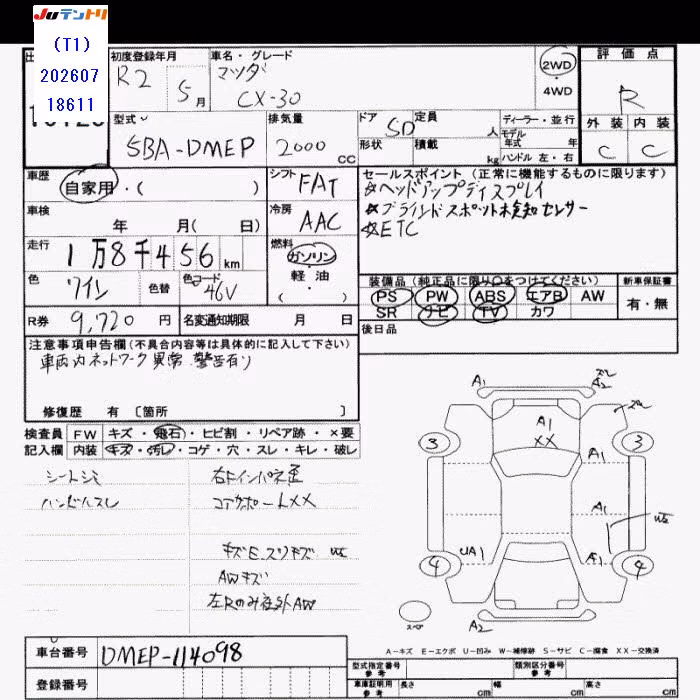 JUテントリ
(T1)
202607
18611
初度登録年月
R2 5月
車名・グレード
マツダ
CX-30
2WD
4WD
評価点
R
外装 内装
C C
型式
5BA-DMEP
排気量
2000 cc
ドア 5D
形状
定員 人
積載 kg
ディーラー・並行
モデル年式 年
ハンドル 左・右
車歴
自家用・( )
シフト
FAT
車検
年 月(日)
冷房
AAC
走行
1万8千456km
燃料
ガソリン
軽・油
( )
色
ワイン
色替
色コード
46V
R券 9,720円
名変通知期限 月 日
セールスポイント (正常に機能するものに限ります)
☆ヘッドアップディスプレイ
☆ブラインドスポット検知センサー
☆ETC
装備品(純正品に限り○をつけてください)
PS PW ABS エアB AW
SR ナビ TV カワ
新車保証書
有・無
後日品
注意事項申告欄(不具合内容等は具体的に記入して下さい)
車両内ネットワーク異常 警告有り
修復歴 有 〔箇所 〕
検査員記入欄
FW キズ・飛石・ヒビ割・リペア跡・×要
内装 キズ・汚レ・コゲ・穴・スレ・キレ・破レ
シートシミ
ハンドルスレ
右Fインパネ歪
コアサポートXX
キズE スリキズ
AWキズ
左Rのみ社外AW
A1
A2
A1
XX
3
3
A1
A1
UA1
4
4
スペア
A2
A-キズ E-エクボ U-凹み W-補修跡 S-サビ C-腐食 XX-交換済
車台番号 DMEP-114098
登録番号
型式指定番号 参考
類別区分番号 参考
車庫証明用 参考
長さ cm
幅 cm
高さ cm